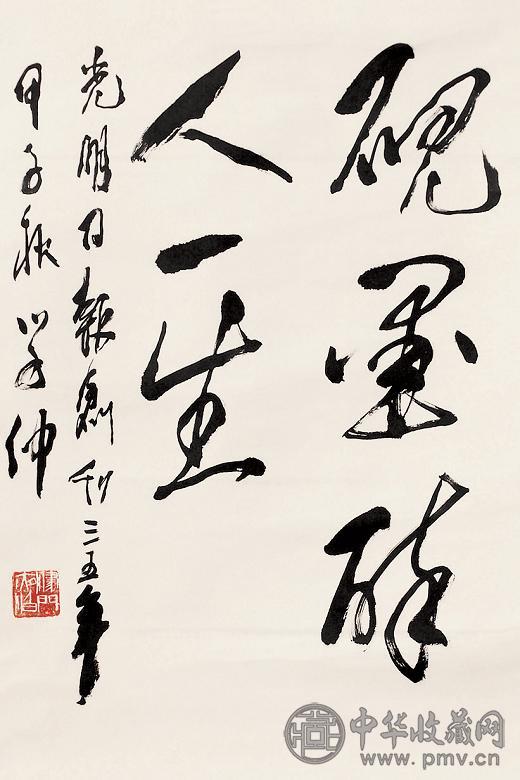 硯墨醉
人一生
光明日報創刊三五年
甲子秋學仲
中华收藏网
www.pmv.cn